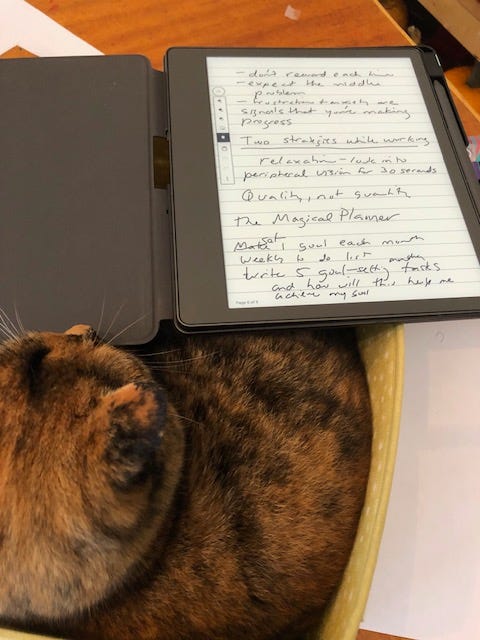 - don't reward each time
- expect the middle
problem
- frustration & anxiety are
signals that you're making
progress
Two strategies while working
relaxation - look into
peripheral vision for 30 seconds
Quality, not quantity
The Magical Planner
set
Make 1 goal each month
weekly to do list
Write 5 goal-setting tasks
and how will this help me
achieve my goal
Page 6 of 6